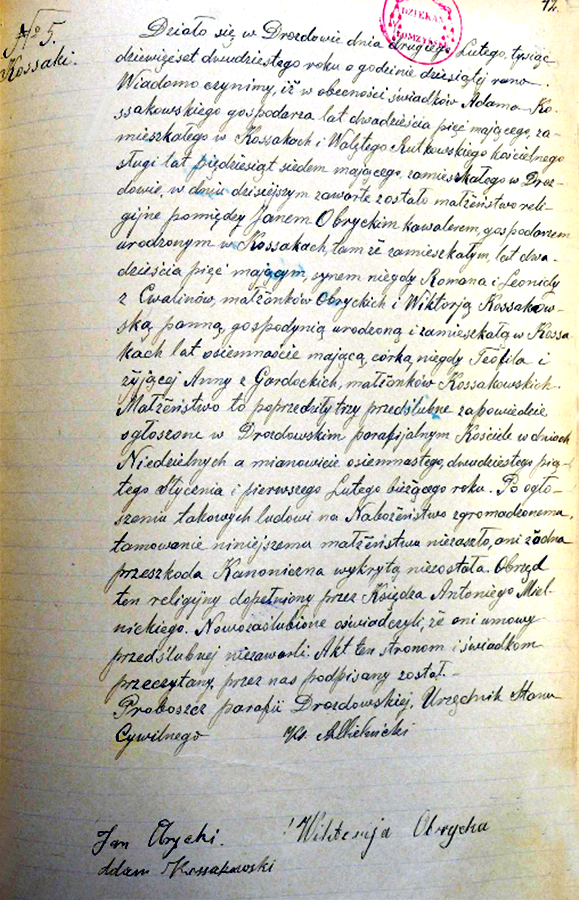 № 5.
Kossaki.
12.
DZIEKAN
ŁOMŻYŃSKI
Działo się w Drozdowie dnia drugiego Lutego, tysiąc
dziewięiset dwudziestego roku o godzinie dziesiątej rano.
Wiadomo czynimy, iż w obecności świadków Adama Ko-
ssakowskiego gospodarza lat dwadzieścia pięć mającego, za-
mieszkałego w Kossakach i Walętego Rutkowskiego kościelnego
sługi lat pięćdziesiąt siedem mającego, zamieszkałego w Droz-
dowie, w dniu dzisiejszym zawarte zostało małżeństwo reli-
gijne pomiędzy Janem Obryckim kawalerem, gospodarzem
urodzonym w Kossakach, tam że zamieszkałym, lat dwa-
dzieścia pięć mającym, synem niegdy Romana i Leonidy
z Cwalinów, małżonków Obryckich i Wiktorją Kossakow-
ską, panną, gospodynią urodzoną i zamieszkałą w Kossa
kach lat osiemnaście mającą, córką niegdy Teofila i
żyjącej Anny z Gardockich, małżonków Kossakowskich.
Małżeństwo to poprzedziły trzy przedślubne zapowiedzie
ogłoszone w Drozdowskim parafijalnym Kościele w dniach
Niedzielnych a mianowicie osiemnastego, dwudziestego pią-
tego Stycznia i pierwszego Lutego bieżącego roku. Po ogło-
szeniu takowych ludowi na Nabożeństwo zgromadzonemu,
tamowanie niniejszemu małżeństwu niezaszło, ani żadna
przeszkoda Kanoniczna wykrytą niezostała. Obrzęd
ten religijny dopełniony przez Księdza Antoniego Miel-
nickiego. Nowozaślubione oświadczyli, że oni umowy
przedślubnej niezawarli. Akt ten stronom i świadkom
przeczytany, przez nas podpisany został.-
Proboszcz parafii Drozdowskiej, Urzędnik Stanu
Cywilnego Ks. A Mielnicki
Jan Obrycki. Wiktorija Obrycka
Adam Kossakowski